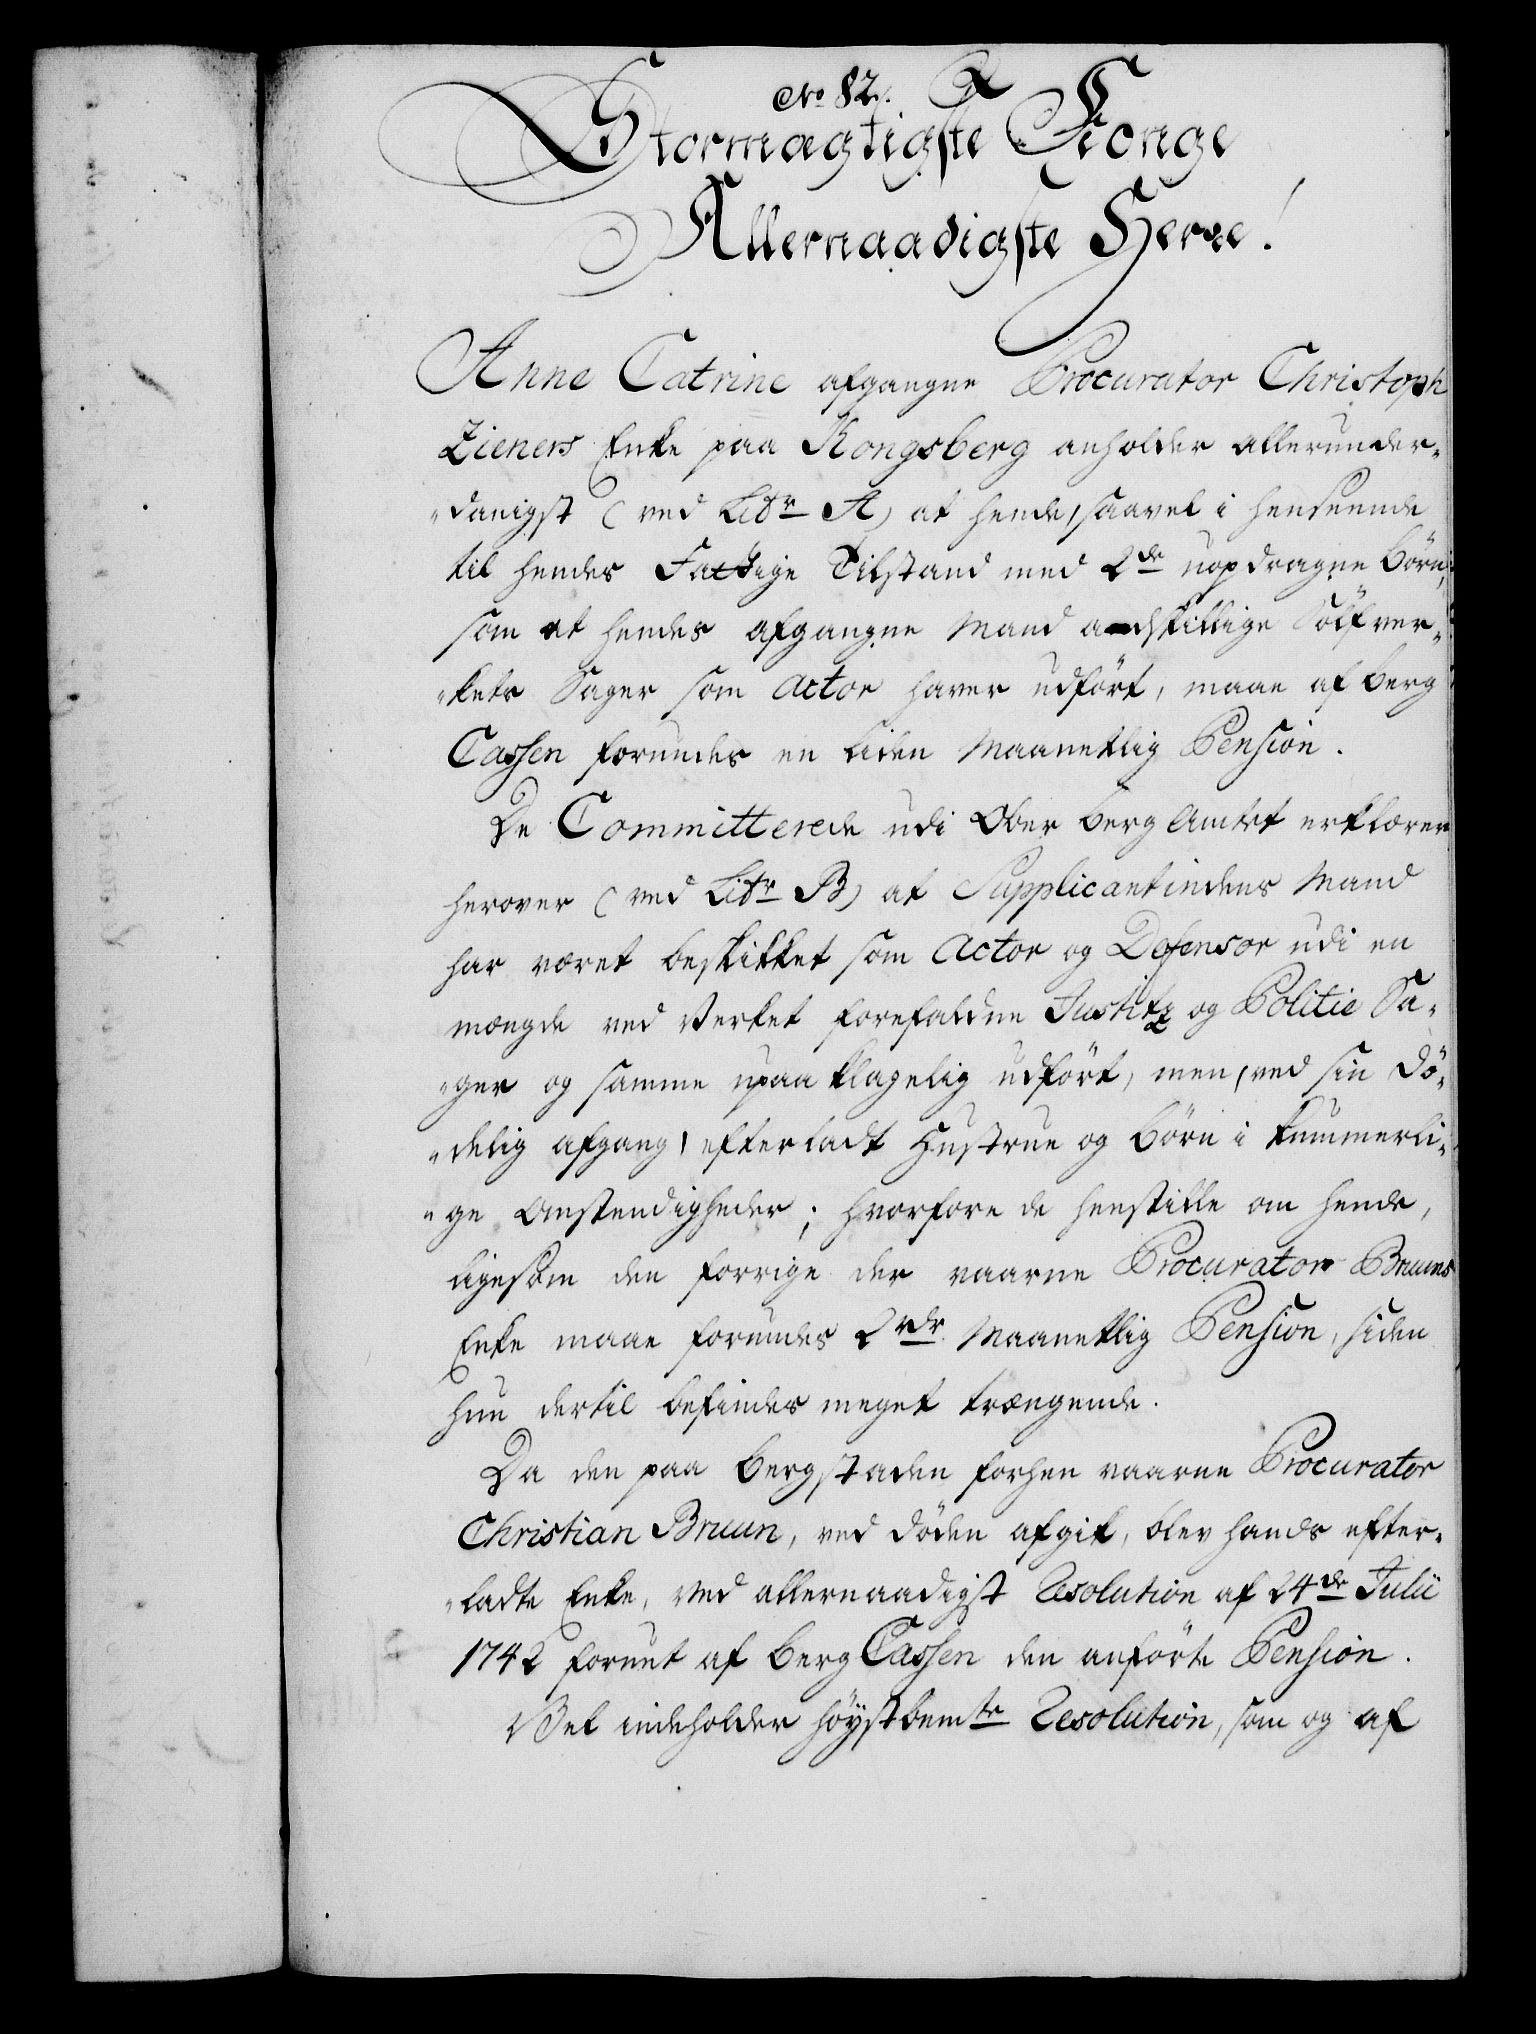 No 82.
Stormægtigste Konge
Allernaadigste Herre!
Anne Catrine afgangne Procurator Christoph
Zieners Enke paa Kongsberg anholder allerunder-
danigst (ved Litr A) at hende, saavel i henseende
til hendes Fattige Tilstand med 2de uopdragne Börn,
som at hendes afgangne Mand adskillige Sölfver-
kets Sager som Actor haver udfört, maae af Berg
Cassen forundes en liden Maanetlig Pension.
De Committerede udi Ober Berg Amtet erklærer
herover (ved Litr B) at Supplicantindens Mand
har været beskikket som Actor og Defensor udi en
mængde ved Verket forefaldne Justitz og Politie Sa-
ger og samme upaaklagelig udfört, men, ved sin Dö-
delig afgang, efterladt Hustrue og Börn i kummerli-
ge Omstendigheder; hvorfore de henstille om hende,
ligesom den forrige der vaarne Procurator Bruuns
Enke maae forundes 2 rdr Maanetlig Pension, siden
hun dertil befindes meget trængende.
Da den paa Bergstaden forhen vaarne Procurator
Christian Bruun, ved Döden afgik, blev hands efter-
ladte Enke, ved allernaadigst Resolution af 24de Julii
1742 forunt af Berg Cassen den anförte Pension.
Vel indeholder höystbemte Resolution, som og af